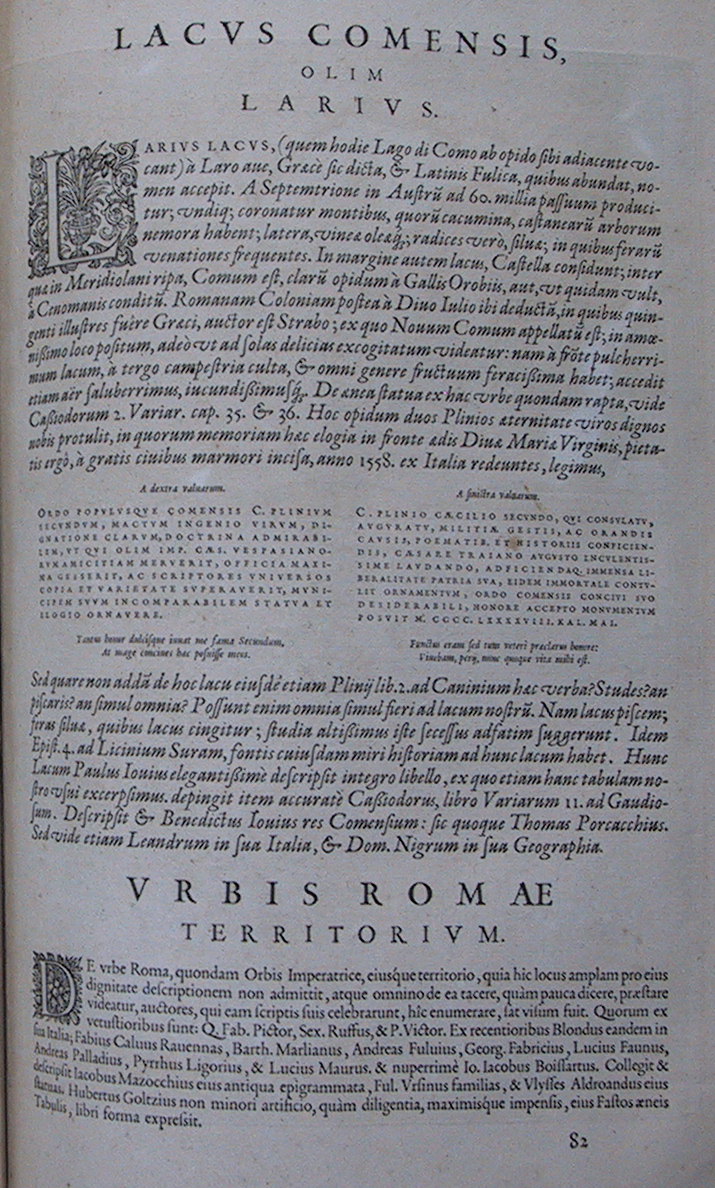 LACVS COMENSIS,
OLIM
LARIVS.
LARIVS LACVS, (quem hodie Lago di Como ab opido sibi adiacente vo-
cant) à Laro aue, Græcè sic dicta, & Latinis Fulica, quibus abundat, no-
men accepit. A Septemtrione in Austrũ ad 60. millia passuum produci-
tur; vndiq; coronatur montibus, quorũ cacumina, castanearũ arborum
nemora habent; latera, vineæ oleæq́; radices verò, siluæ; in quibus ferarũ
venationes frequentes. In margine autem lacus, Castella considunt; inter
quæ in Meridiolani ripa, Comum est, clarũ opidum à Gallis Orobiis, aut, vt quidam vult,
à Cenomanis conditũ. Romanam Coloniam postea à Diuo Iulio ibi deductã, in quibus quin-
genti illustres fuêre Græci, auctor est Strabo; ex quo Nouum Comum appellatũ est; in amœ-
nißimo loco positum, adeò vt ad solas delicias excogitatum videatur: nam à frõte pulcherri-
mum lacum, à tergo campestria culta, & omni genere fructuum feracißima habet; accedit
etiam aër saluberrimus, iucundißimusq́;. De ænea statua ex hac vrbe quondam rapta, vide
Caßiodorum 2. Variar. cap. 35. & 36. Hoc opidum duos Plinios æternitate viros dignos
nobis protulit, in quorum memoriam hæc elogia in fronte ædis Diuæ Mariæ Virginis, pieta-
tis ergò, à gratis ciuibus marmori incisa, anno 1558. ex Italia redeuntes, legimus,
A dextra valuarum.
ORDO POPVLVSQVE COMENSIS C. PLINIVM
SECVNDVM, MACTVM INGENIO VIRVM, DI-
GNATIONE CLARVM, DOCTRINA ADMIRABI-
LEM, VT QVI OLIM IMP. CÆS. VESPASIANO-
RVM AMICITIAM MERVERIT, OFFICIA MAXI-
MA GESSERIT, AC SCRIPTORES VNIVERSOS
COPIA ET VARIETATE SVPERAVERIT, MVNI-
CIPEM SVVM INCOMPARABILEM STATVA ET
ELOGIO ORNAVERE.
Tantus honor dulcisque iuuat me fama Secundum,
At mage conciues hæc posuisse meos.
A sinistra valuarum.
C. PLINIO CÆCILIO SECVNDO, QVI CONSVLATV,
AVGVRATV, MILITIÆ GESTIS, AC ORANDIS
CAVSIS, POEMATIB. ET HISTORIIS CONFICIEN-
DIS, CÆSARE TRAIANO AVGVSTO LVCVLENTIS-
SIME LAVDANDO, ADFICIENDAQ. IMMENSA LI-
BERALITATE PATRIA SVA, EIDEM IMMORTALE CONTV-
LIT ORNAMENTVM, ORDO COMENSIS CONCIVI SVO
DESIDERABILI, HONORE ACCEPTO MONVMENTVM
POSVIT M. CCCC. LXXXXVIII. KAL. MAI.
Functus eram sed tum veteri præclarus honore:
Viuebam, perij, nunc quoque vita mihi est.
Sed quare non addã de hoc lacu eiusdẽ etiam Plinij lib. 2. ad Caninium hæc verba? Studes? an
piscaris? an simul omnia? Possunt enim omnia simul fieri ad lacum nostrũ. Nam lacus piscem;
feras siluæ, quibus lacus cingitur; studia altißimus iste secessus adfatim suggerunt. Idem
Epist. 4. ad Licinium Suram, fontis cuiusdam miri historiam ad hunc lacum habet. Hunc
Lacum Paulus Iouius elegantißimè descripsit integro libello, ex quo etiam hanc tabulam no-
stro vsui excerpsimus. depingit item accuratè Caßiodorus, libro Variarum 11. ad Gaudio-
sum. Descripsit & Benedictus Iouius res Comensium: sic quoque Thomas Porcacchius.
Sed vide etiam Leandrum in sua Italia, & Dom. Nigrum in sua Geographia.
VRBIS ROMAE
TERRITORIVM.
DE vrbe Roma, quondam Orbis Imperatrice, eiusque territorio, quia hic locus amplam pro eius
dignitate descriptionem non admittit, atque omnino de ea tacere, quàm pauca dicere, præstare
videatur, auctores, qui eam scriptis suis celebrarunt, hîc enumerare, sat visum fuit. Quorum ex
vetustioribus sunt: Q. Fab. Pictor, Sex. Ruffus, & P. Victor. Ex recentioribus Blondus eandem in
sua Italia; Fabius Caluus Rauennas, Barth. Marlianus, Andreas Fuluius, Georg. Fabricius, Lucius Faunus,
Andreas Palladius, Pyrrhus Ligorius, & Lucius Maurus. & nuperrimè Io. Iacobus Boissartus. Collegit &
descripsit Iacobus Mazocchius eius antiqua epigrammata, Ful. Vrsinus familias, & Vlysses Aldroandus eius
statuas. Hubertus Goltzius non minori artificio, quàm diligentia, maximisque impensis, eius Fastos æneis
Tabulis, libri forma expressit.
82